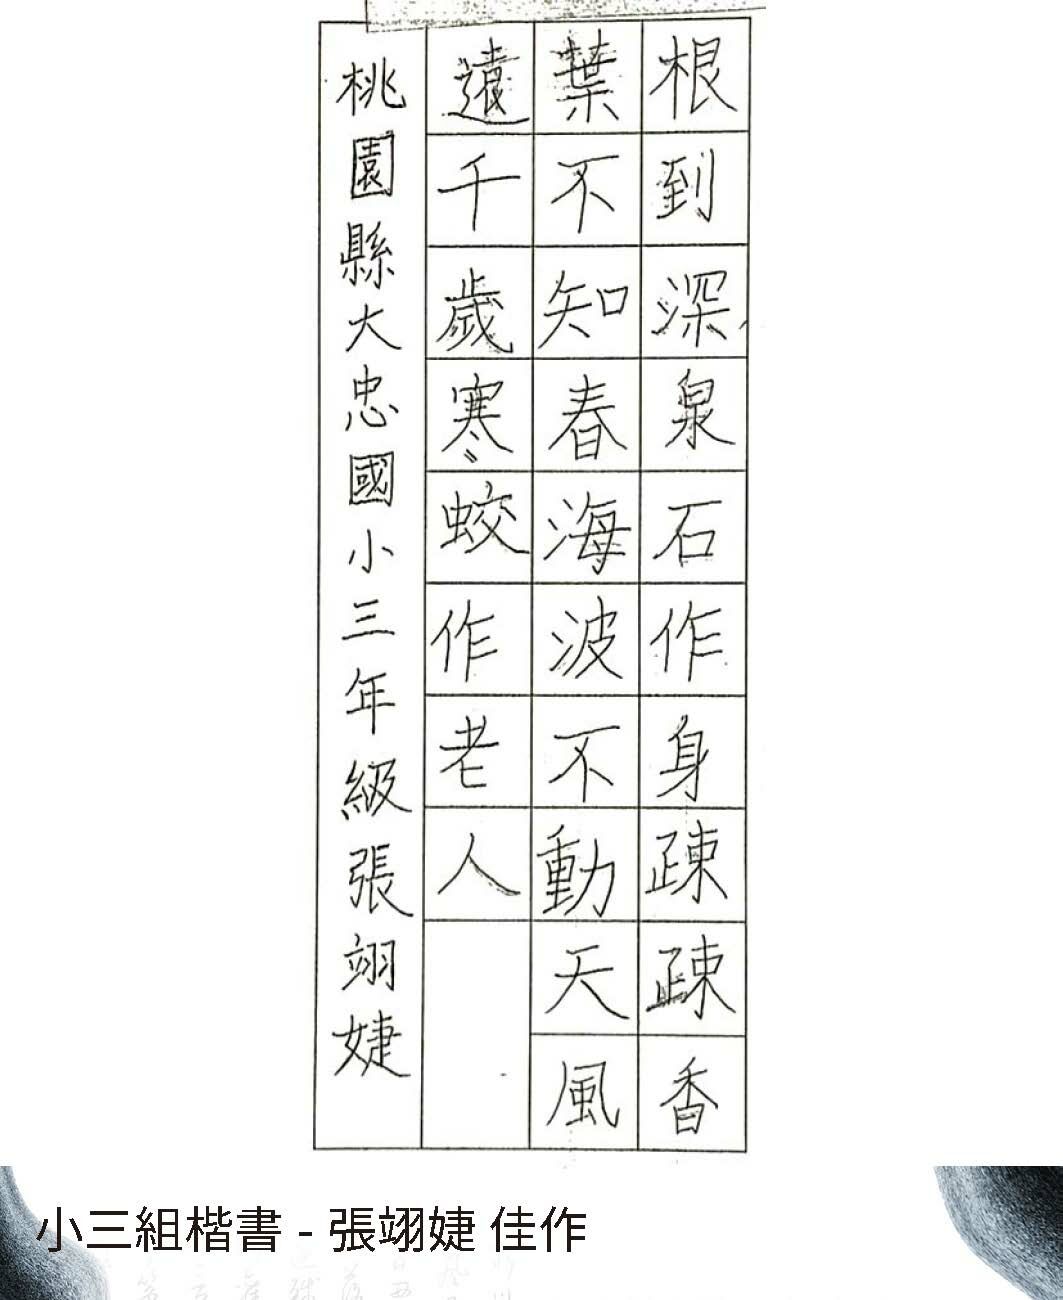 根到深泉石作身疎疎香
葉不知春海波不動天風
遠千歲寒蛟作老人
桃園縣大忠國小三年級張翊婕
小三組楷書 - 張翊婕 佳作